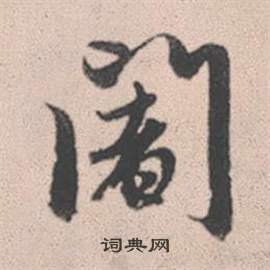 闍
词典网